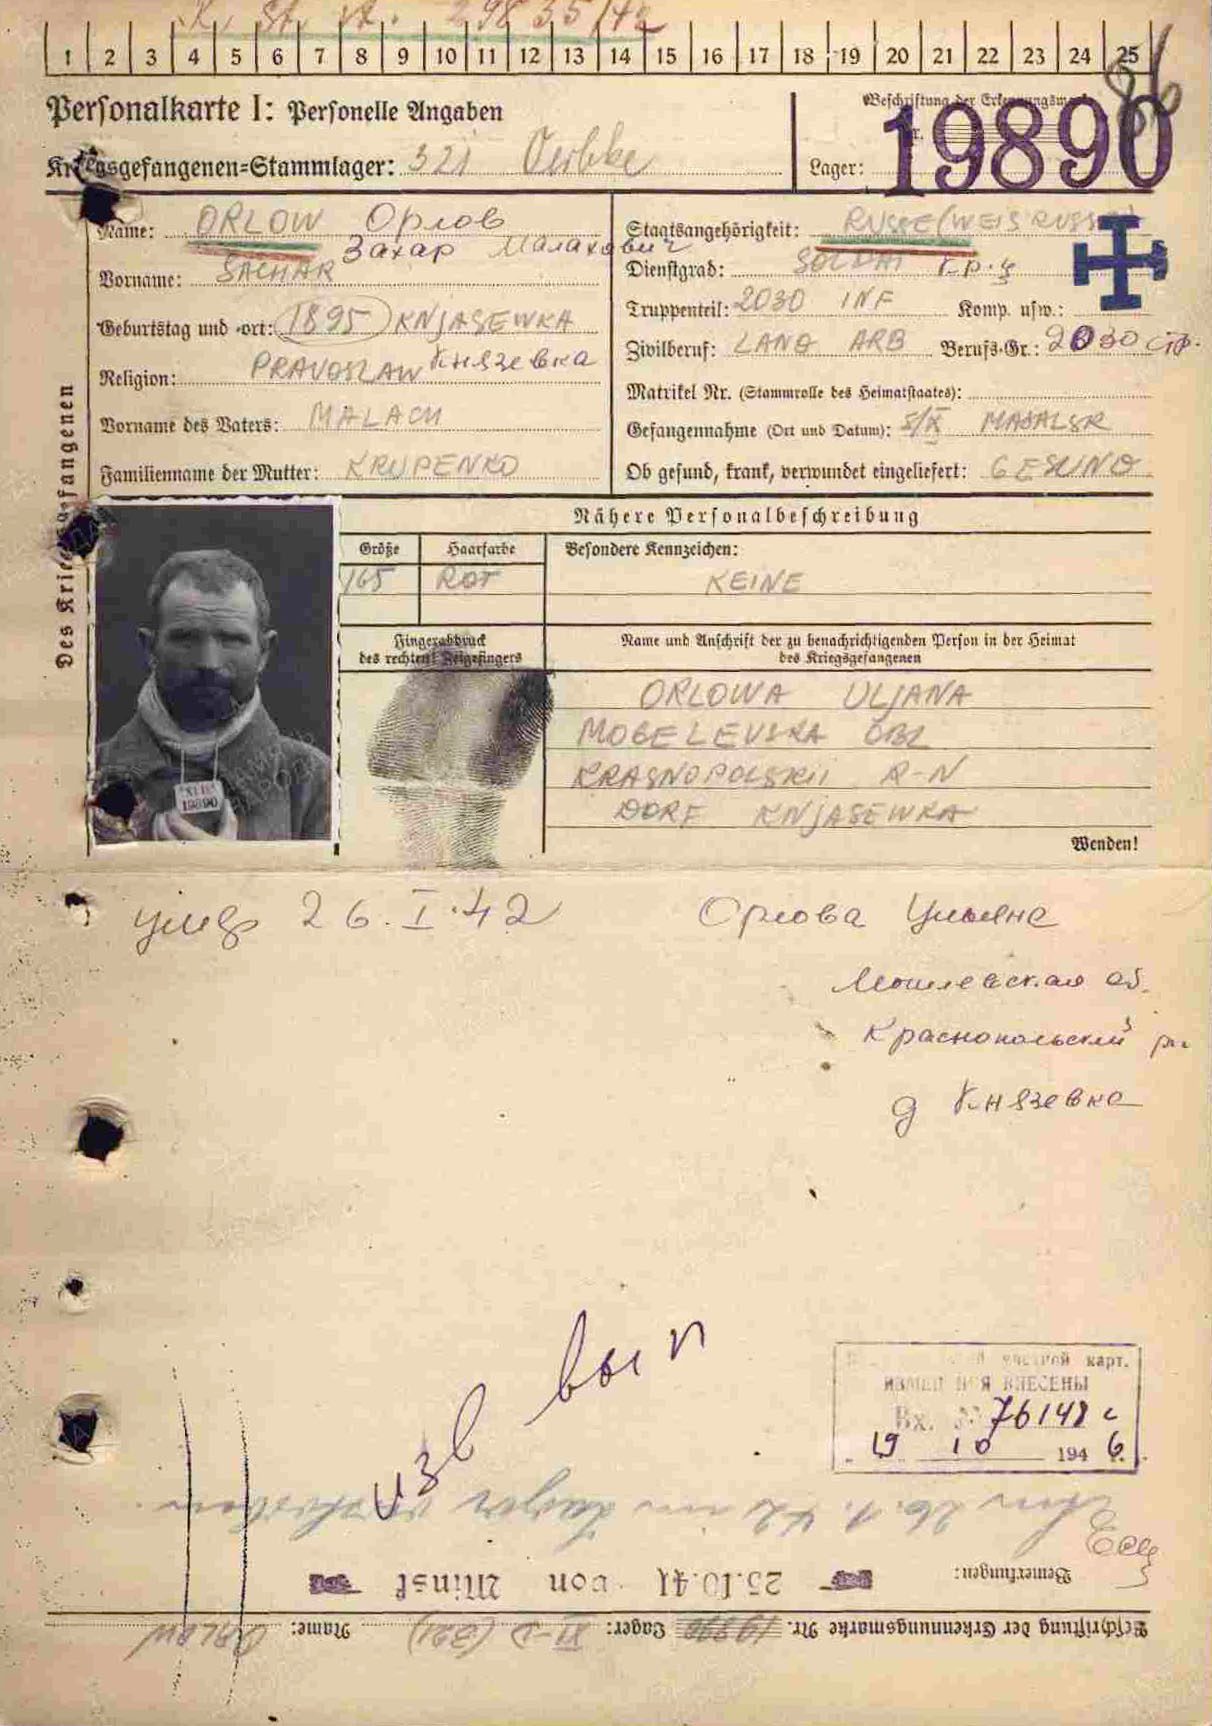 K. St. 29835/42
1 2 3 4 5 6 7 8 9 10 11 12 13 14 15 16 17 18 19 20 21 22 23 24 25
Personalkarte I: Personelle Angaben
Kriegsgefangenen-Stammlager: 321 Oerbke
Beschriftung der Erkennungsmarke
Nr. 19890
Lager:
Des Kriegsgefangenen
Name: ORLOW Орлов
Захар Малахович
Vorname: SACHAR
Geburtstag und -ort: 1895 KNJASEWKA
Князевка
Religion: PRAVOSLAW
Vorname des Vaters: MALACH
Familienname der Mutter: KRUPENKO
Staatsangehörigkeit: RUSSE (WEISRUSSE)
Dienstgrad: SOLDAT кр-ц
Truppenteil: 2030 INF Komp. usw.:
Zivilberuf: LAND ARB Berufs-Gr.: 2030 стр.
Matrikel Nr. (Stammrolle des Heimatstaates):
Gefangennahme (Ort und Datum): 5/X
Ob gesund, krank, verwundet eingeliefert: GESUND
Nähere Personalbeschreibung
Größe Haarfarbe Besondere Kennzeichen:
165 ROT KEINE
Fingerabdruck
des rechten Zeigefingers
Name und Anschrift der zu benachrichtigenden Person in der Heimat
des Kriegsgefangenen
ORLOWA ULJANA
MOGELEVSKA OBL
KRASNOPOLSKII R-N
DORF KNJASEWKA
19890
Wenden!
умер 26.I.42
Орлова Ульяна
Могилевская об.
Краснопольский рн
д Князевка
изв вып
карт.
ИЗМЕНЕНИЯ ВНЕСЕНЫ
Вх. № 76148 с
19 10 1946.
Am 26.1.42 im Lager verstorben.
Bemerkungen:
25.10.41 von Minsk
Beschriftung der Erkennungsmarke Nr. 19890 Lager: XI-D (321) Name: ORLOW